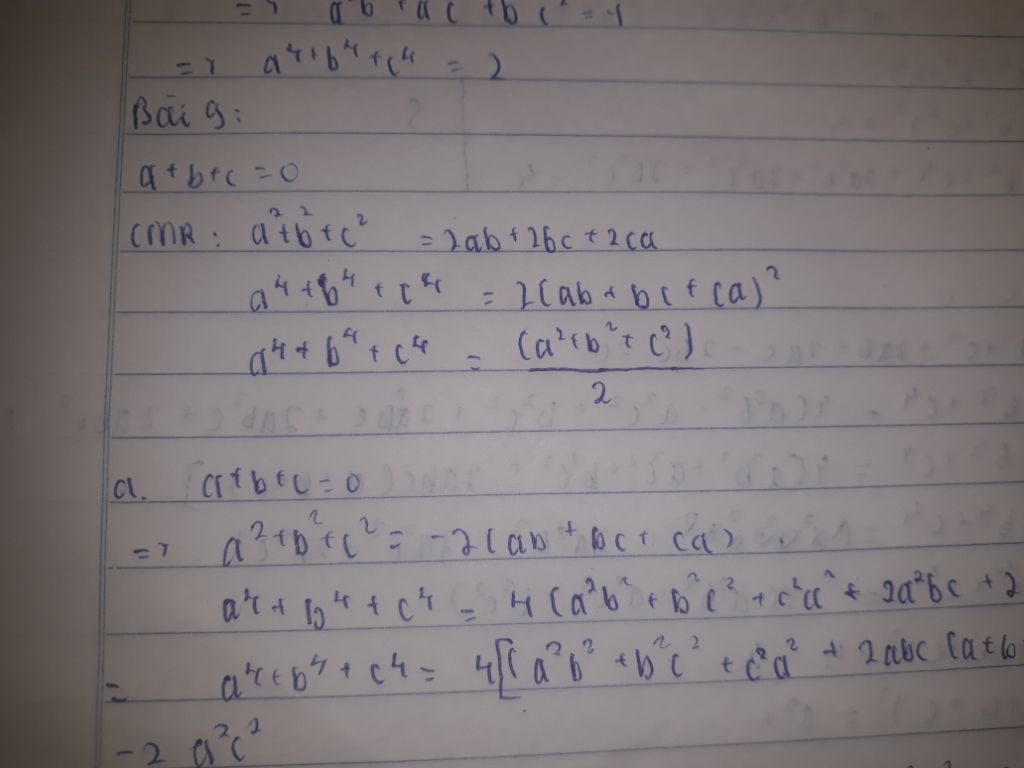 => a²b² + a²c² + b²c² = 1
=> a⁴+b⁴+c⁴ = 2
Bài 9:
a+b+c=0
CMR: a²+b²+c² = 2ab+2bc+2ca
a⁴+b⁴+c⁴ = 2(ab+bc+ca)²
a⁴+b⁴+c⁴ = (a²+b²+c²)/2
a. a+b+c=0
=> a²+b²+c² = -2(ab+bc+ca)
a⁴+b⁴+c⁴ = 4(a²b²+b²c²+c²a²+2a²bc+2
= a⁴+b⁴+c⁴ = 4[(a²b²+b²c²+c²a²+2abc(a+b
-2 a²c²